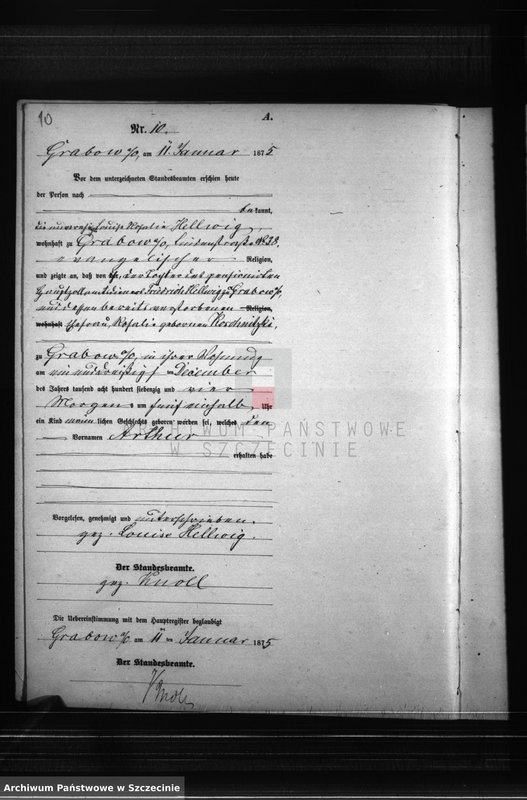 10
A.
Nr. 10.
Grabow a/O, am 11 Januar 1875
Vor dem unterzeichneten Standesbeamten erschien heute
der Person nach
bekannt,
die unverehl. Louise Rosalie Hellwig,
wohnhaft zu Grabow a/O, Lindenstraße № 38,
evangelischer Religion,
und zeigte an, daß von ihr, der Tochter des pensionirten
Friedrich Hellwig zu Grabow a/O,
und dessen bereits verstorbenen Religion,
wohnhaft Ehefrau, Rosalie geborenen
zu Grabow a/O, in ihrer Wohnung
am ein und dreißigsten December
des Jahres tausend acht hundert siebenzig und vier
Morgens um fünf einhalb Uhr
ein Kind männlichen Geschlechts geboren worden sei, welches den
Vornamen Arthur
erhalten habe
Vorgelesen, genehmigt und unterschrieben.
gez. Louise Hellwig.
Der Standesbeamte.
gez. Knoll
Die Uebereinstimmung mit dem Hauptregister beglaubigt
Grabow a/O am 11 ten Januar 1875
Der Standesbeamte.
Knoll
ARCHIWUM PAŃSTWOWE
W SZCZECINIE
Archiwum Państwowe w Szczecinie